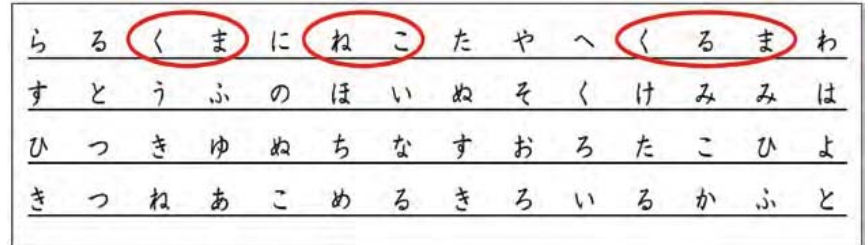 らるくまにねこたやへくるまわ
すとうふのほいぬそくけみみは
ひつきゆぬちなすおろたこひよ
きつねあこめるきろいるかふと